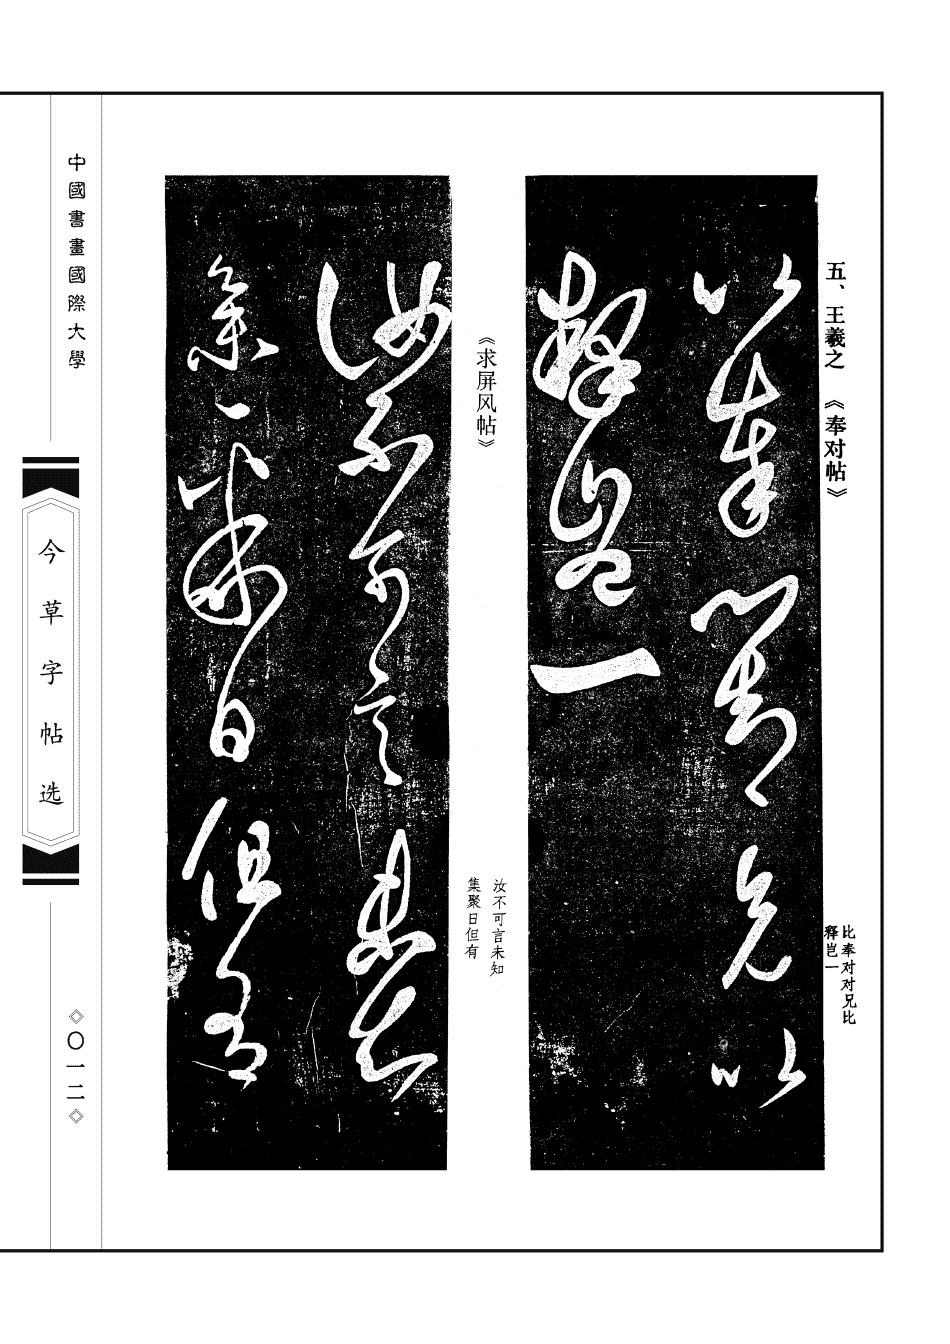 五、王羲之 《奉对帖》
比奉对对兄比
释岂一
《求屏风帖》
汝不可言未知
集聚日但有
中國書畫國際大學
今草字帖选
◇〇一二◇